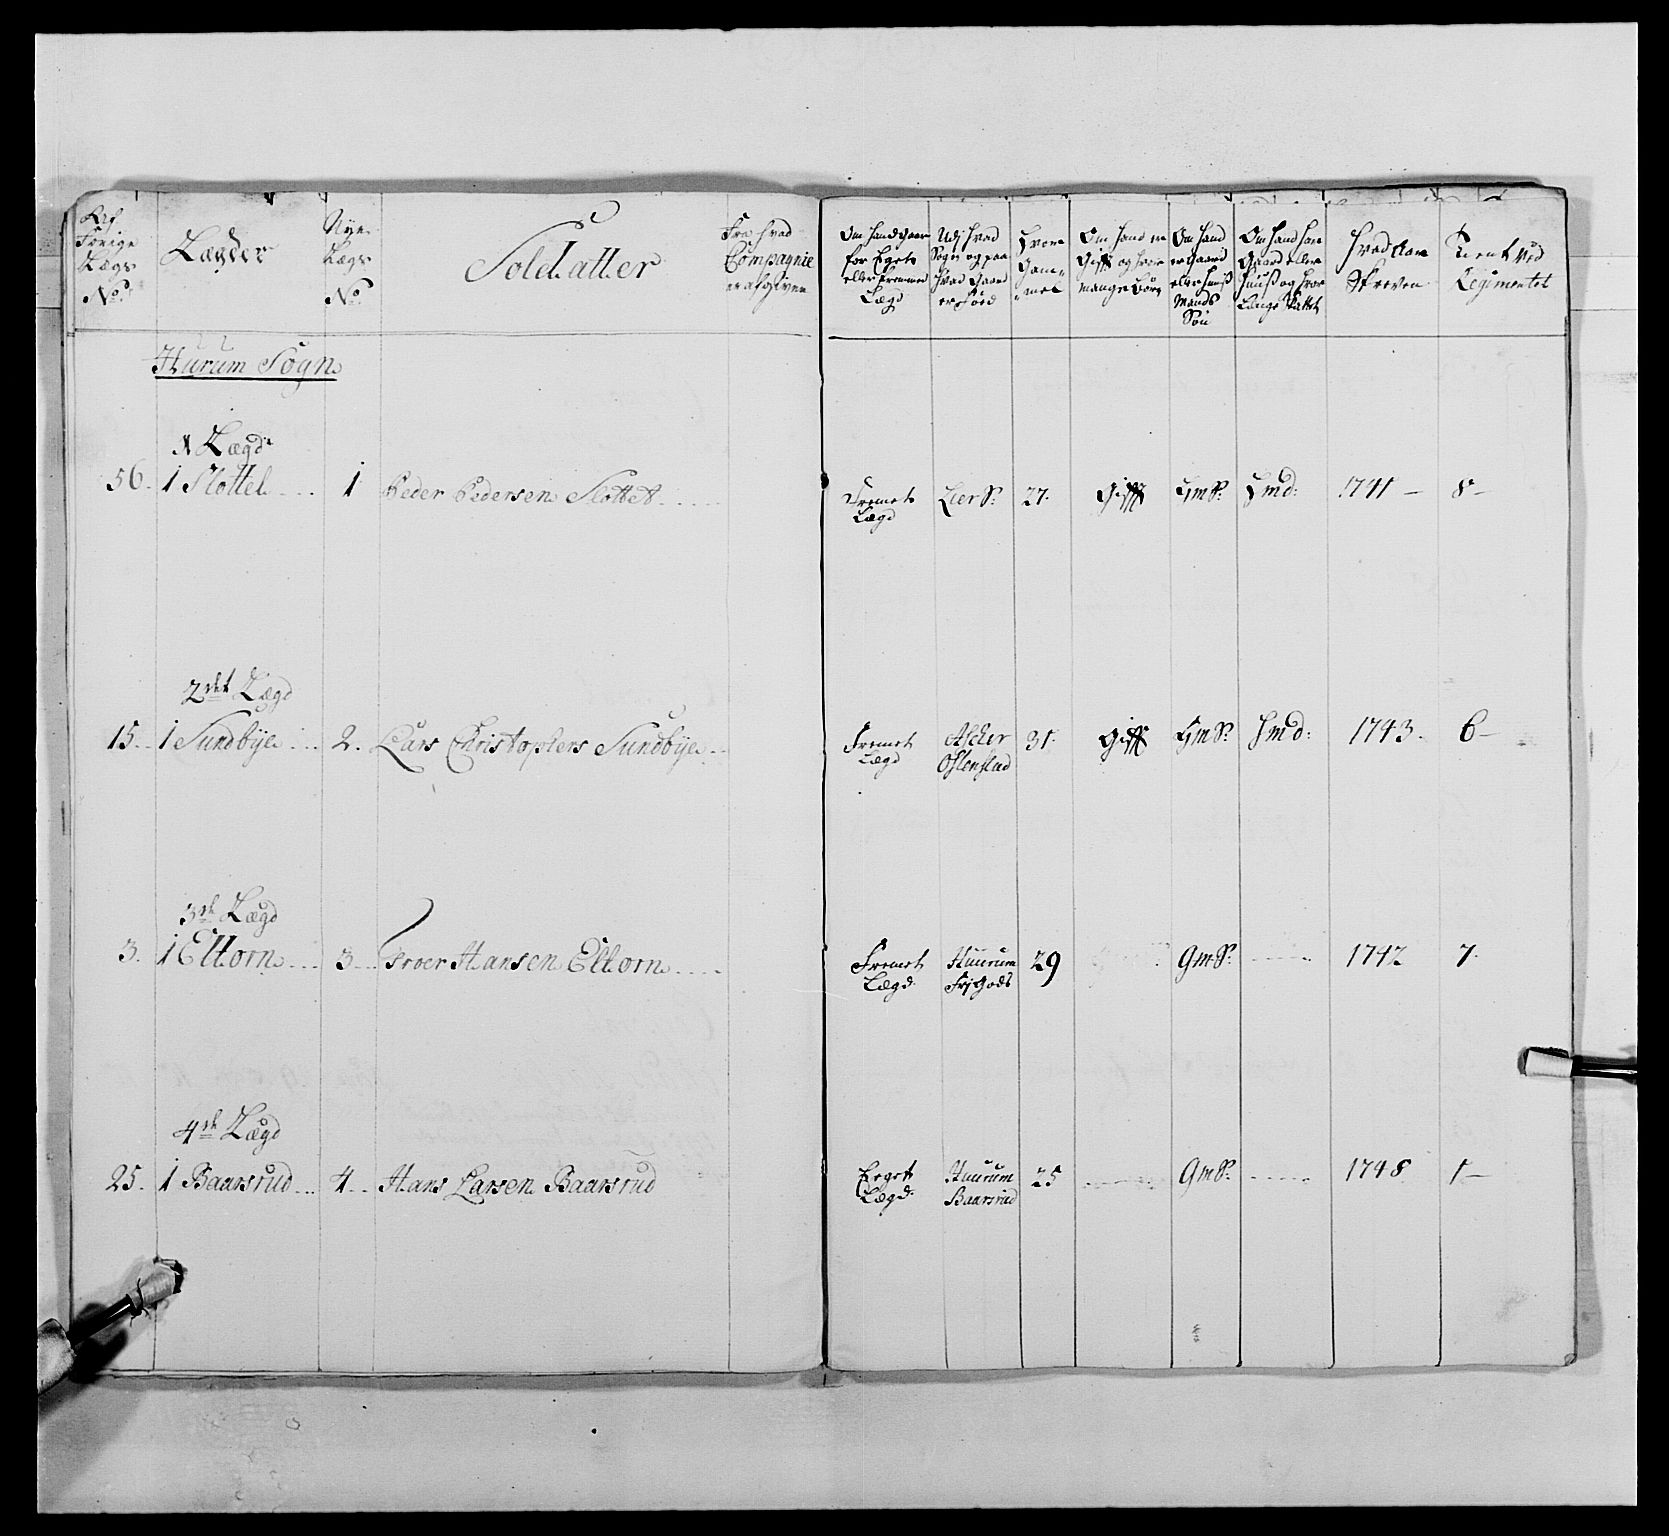 Forige Lægs No.
Lægder
Nye Lægs No
Soldatter
Fra hvad Compagnie er afgiven
Om hand staar for Eget eller fremmed Lægd
Udj hvad Sogn og paa hvad Gaard er föed
Hvor Gammel
Om hand er Gift og hvor mange Börn
Om hand er Gaard eller Huus Mands Sön
Om hand har Gaard eller Huus og hvor Længe Skattet
Hvad Aar Skreven
Tient ved Regimentet
Hurum Sogn
1 Lægd
56. 1 Slottet 1 Peder Pedersen Slottet Fremet Lægd Lier S: 27. Gift HmS: Hmd: 1741 8
2det Lægd
15. 1 Sundbÿe 2. Lars Christophers Sundbÿe Fremet Lægd Ascher Ostenstad 31. Gift GmS: Hmd: 1743. 6
3de Lægd
3. 1 Ellorn 3 Troer Hansen Ellorn Fremet Lægd Huurum 29 GmS: 1742 7.
4de Lægd
25. 1 Baarsrud 4 Hans Larsen Baarsrud Eeget Lægd. Huurum Baarsrud 25 GmS: 1748 1